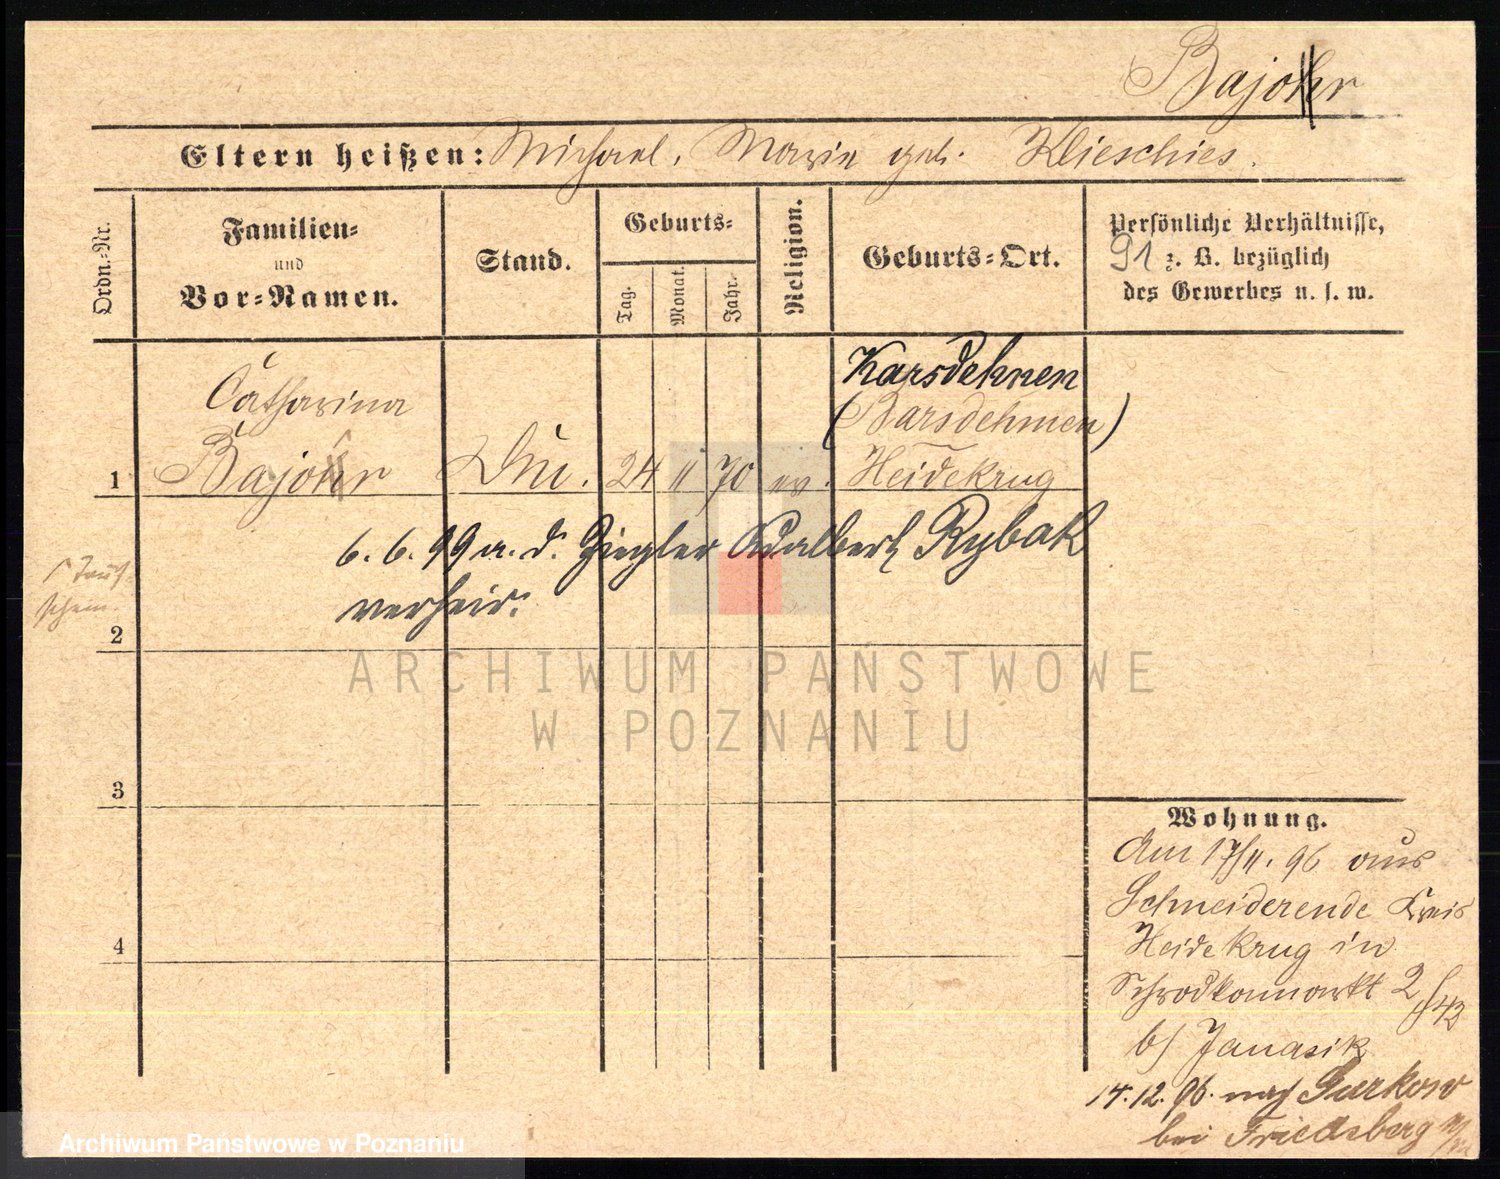 Bajohr
Eltern heißen: Michael, Marie geb. Klieschies.
Ordn.-Nr.
Familien-
und
Vor-Namen.
Stand.
Geburts-
Tag.
Monat.
Jahr.
Religion.
Geburts-Ort.
Persönliche Verhältnisse,
91 z. B. bezüglich
des Gewerbes u. s. w.
Karsdehnen
Catharina (Barsdehmen)
1 Bajohr 24 11 70 ev. Heidekrug
6. 6. 99 a. d. Ziegler Adalbert Rybak
verheir.
Tauf-
schein.
2
3
4
ARCHIWUM PAŃSTWOWE
W POZNANIU
Wohnung.
Am 17/11. 96 aus
Schneiderende Kreis
Heidekrug in
Schrodkamarkt 2
b/ Janasik
14.12.96. nach Gurkow
bei Friedeberg
Archiwum Państwowe w Poznaniu